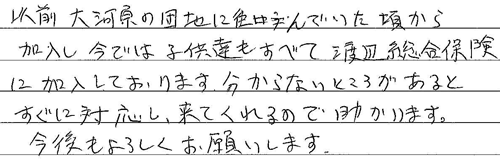 以前 大河原の団地に住んでいた頃から
加入し 今では 子供達もすべて 渡辺総合保険
に加入しております。分からないところがあると
すぐに対応し、来てくれるので 助かります。
今後もよろしくお願いします。